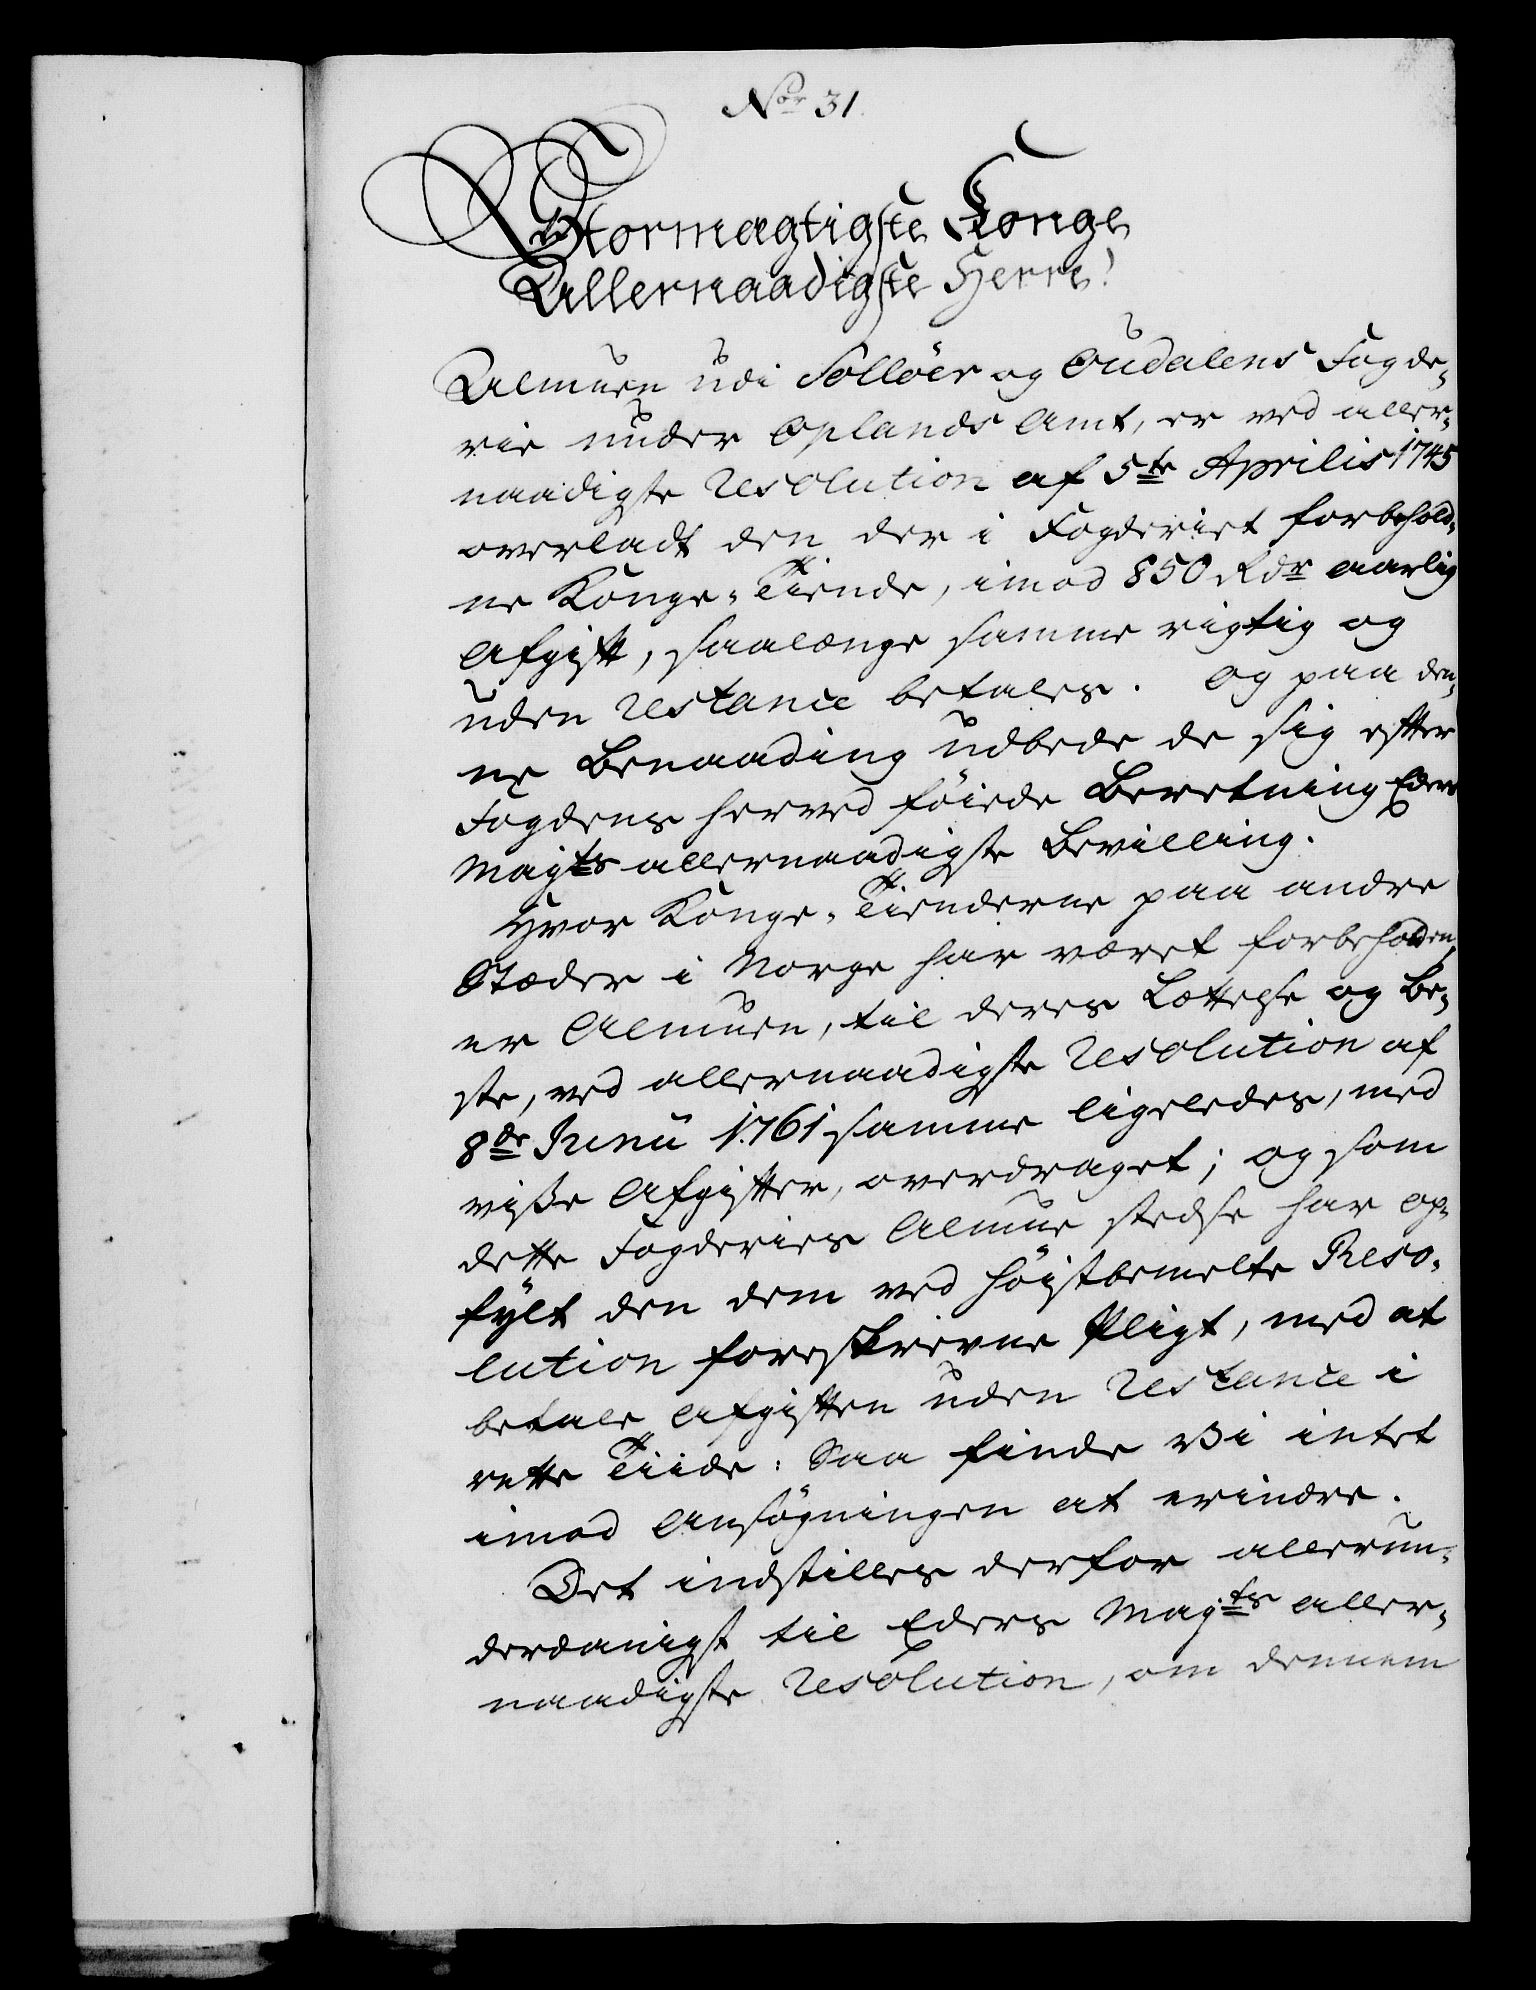 No 31.
Stormægtigste Konge
Allernaadigste Herre!
Almuen udi Sollöer og Oudalens Fogde-
rie under Oplands Amt, er ved aller-
naadigste Resolution af 5te Aprilis 1745
overladt den der i Fogderiet forbehold-
ne Konge-Tiende, imod 850 Rdr aarlig
Afgift, saalænge samme rigtig og
uden Restance betales. Og paa den-
ne Benaading udbede de sig efter
Fogdens herved föiede Beretning Eders
Mayts allernaadigste Bevilling.
Hvor Konge-Tienderne paa andre
Stæder i Norge har været forbeholden,
er Almuen, til deres Lættelse og Be-
ste, ved allernaadigste Resolution af
8de Junii 1761 samme ligeledes, med
visse Afgifter, overdraget; og som
dette Fogderies Almue stedse har op-
fylt den dem ved höistbemelte Reso-
lution foreskrevne Pligt, med at
betale Afgiften uden Restance i
rette Tiide: Saa finde Vi intet
imod Ansögningen at erindre.
Det indstilles derfor allerun-
derdanigst til Eders Mayts aller-
naadigste Resolution, om dennem